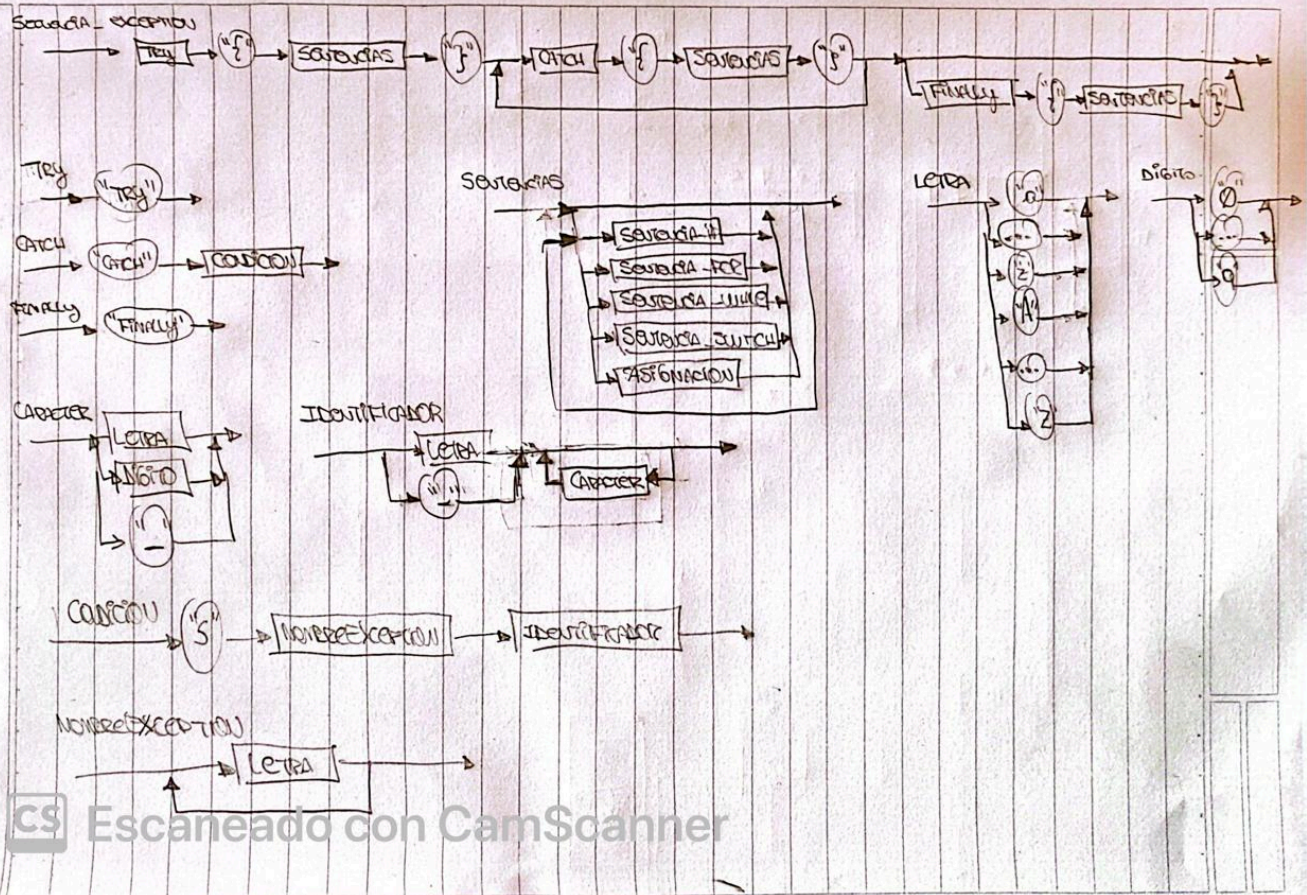 SENTENCIA_EXCEPTION
TRY "{" SENTENCIAS "}" CATCH "{" SENTENCIAS "}"
FINALLY "{" SENTENCIAS "}"
TRY
"TRY"
CATCH
"CATCH" CONDICION
FINALLY
"FINALLY"
SENTENCIAS
SENTENCIA_IF
SENTENCIA_FOR
SENTENCIA_WHILE
SENTENCIA_SWITCH
ASIGNACION
LETRA
"a"
...
"z"
"A"
...
"Z"
DIGITO
"0"
...
"9"
CARACTER
LETRA
DIGITO
"_"
IDENTIFICADOR
LETRA
"_"
CARACTER
CONDICION
NOMBREEXCEPTION IDENTIFICADOR
NOMBREEXCEPTION
LETRA
CS Escaneado con CamScanner